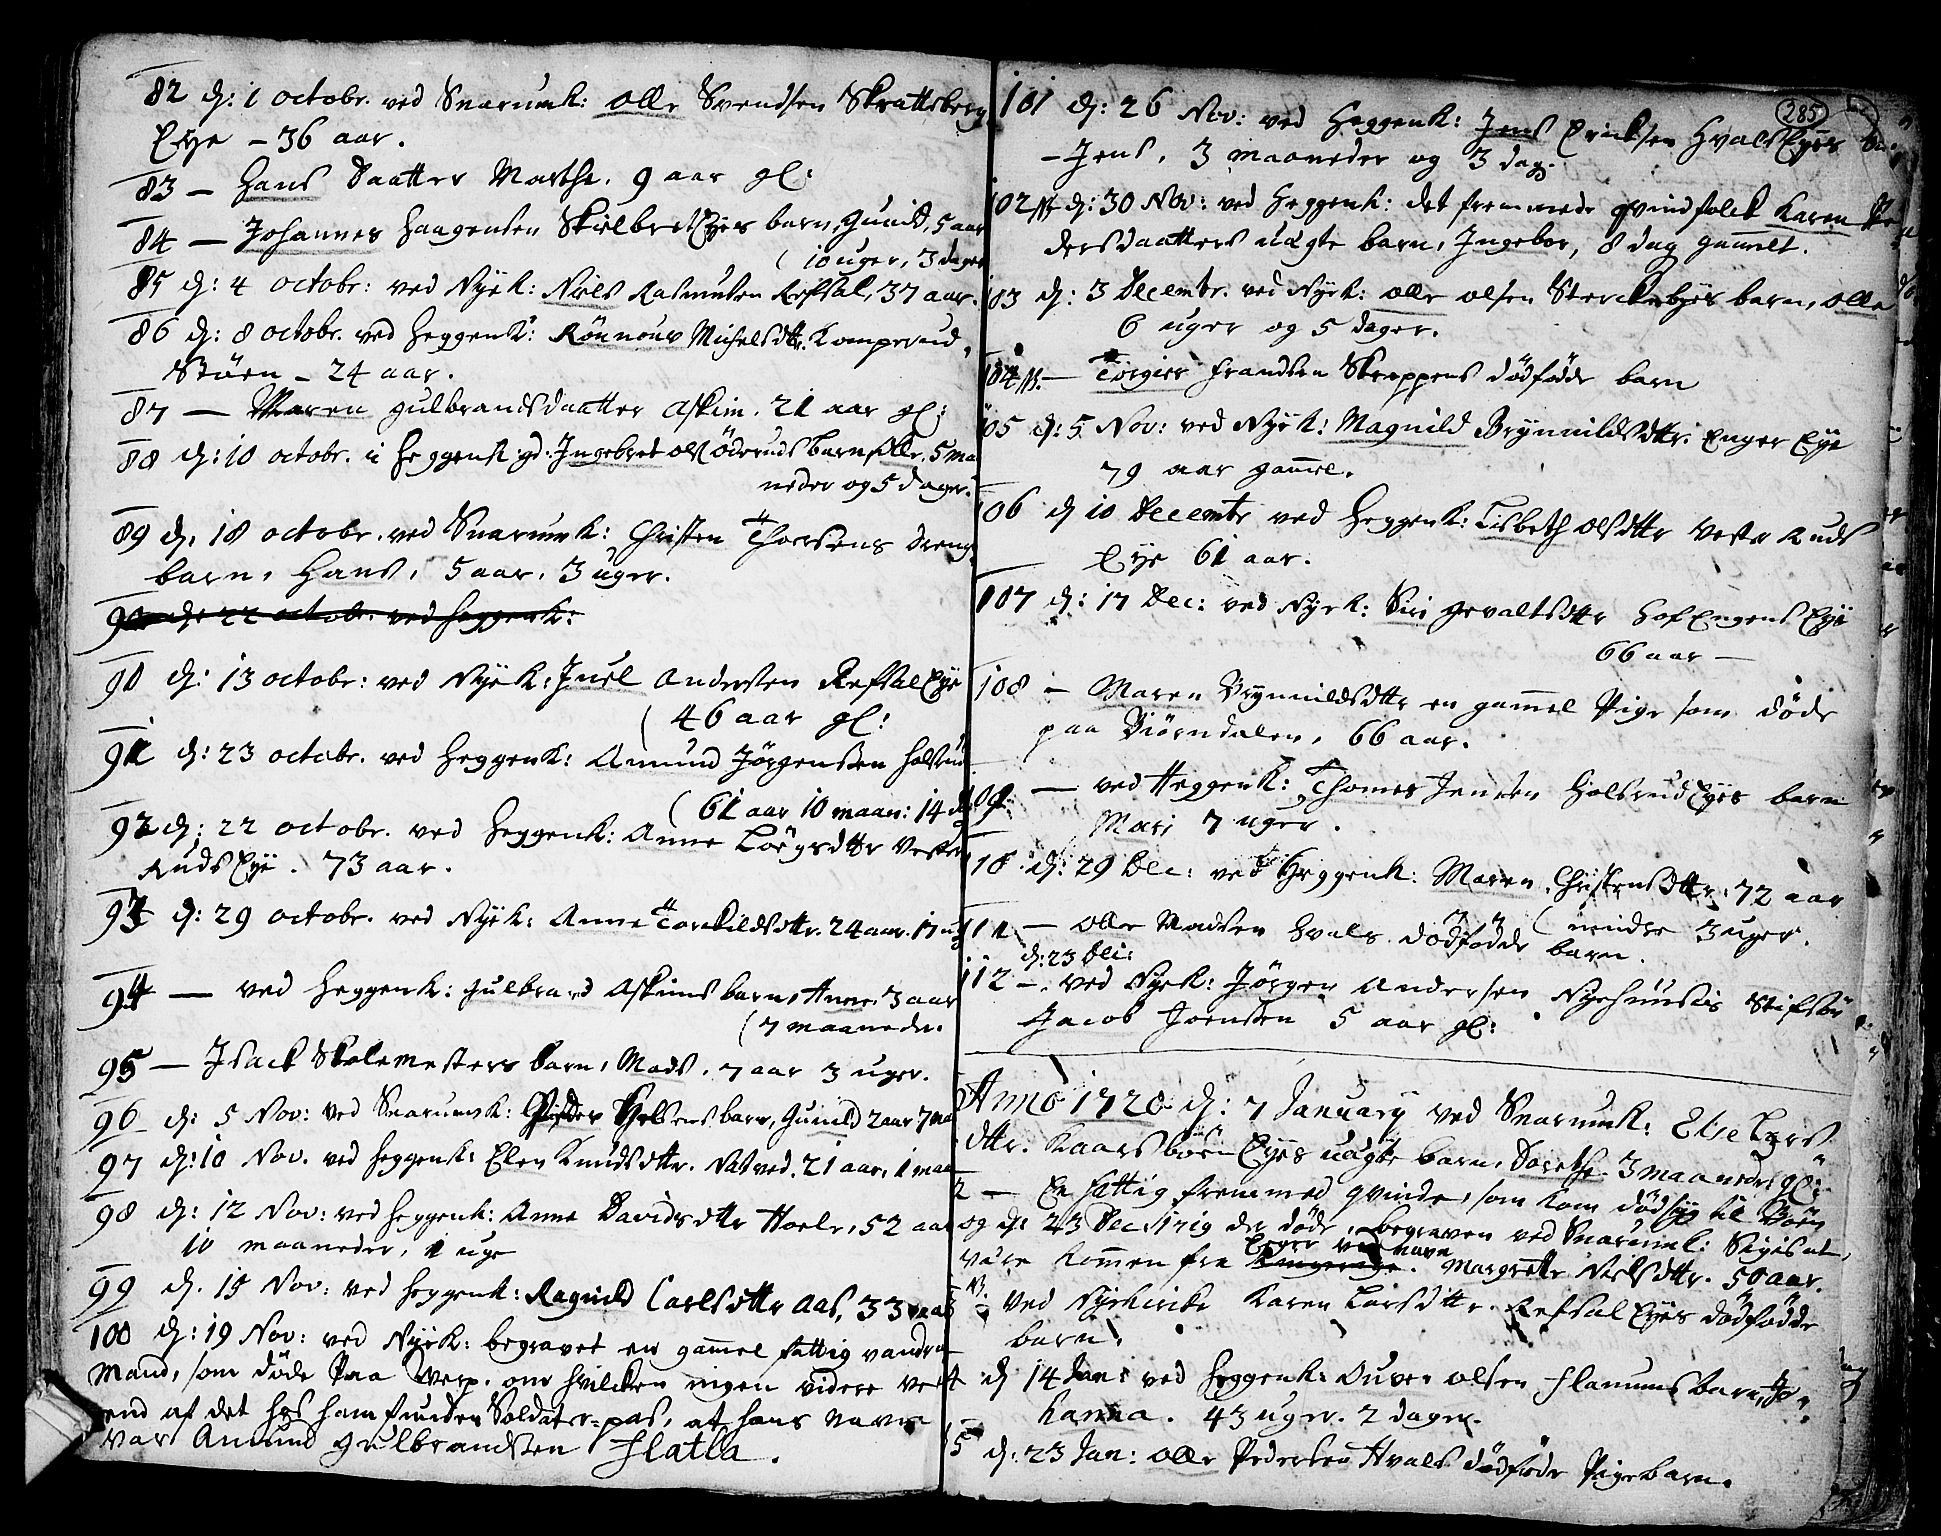 82 d: 1 octobr. ved Snarumk: Olle Svendsen Skrattsberg
Eye – 36 aar.
83 – Hans Daatter Marthe. 9 aar gl:
84 – Johannes Haagensen Skielbret Eyes barn, Gunild, 5 aar
( 10 uger, 3 dager
85 d: 4 octobr: ved Nyek: Niels Rasmusen Refsal, 37 aar.
86 d: 8 octobr. ved Heggenk: Rönnouv Michelsdttr. Komperud,
Støen – 24 aar.
87 – Maren gulbrandsdaatter Askim. 21 aar gl:
88 d: 10 octobr. i Heggenk: gd. Ingebret Ols Öderuds barn, Olle. 5 maa
neder og 5 dager.
89 d. 18 octobr. ved Snarumk: Christen Thorsens drenge
barn, Hans, 5 aar, 3 uger.
90 d: 22 octobr. ved Heggenk:
90 d: 13 octobr: ved Nyek: Juel Andersen Refsal Eye
( 46 aar gl:
91 d: 23 octobr. ved Heggenk: Amund Jörgensen Holsrud
( 61 aar 10 maan: 14 d
92 d: 22 octobr. ved Heggenk: Anne Börgsdttr Vester
Ruds Eye. 73 aar.
93 d: 29 octobr. ved Nyek: Anne Torkildsdttr. 24 aar. 17 ug
94 – ved Heggenk: gulbrand Askims barn, Anne. 3 aar
( 7 maaneder.
95 – Isack Skolemesters barn, Mads. 7 aar 3 uger.
96 d: 5 Nov: ved Snarumk: barn, Gunild 2 aar 7 maa
97 d: 10 Nov. ved Heggenk: Elen Knudsdttr. Natved. 21 aar, 1 maa
98 d: 12 Nov: ved Heggenk: Anne Davidsdttr Hoele, 52 aar
10 maaneder, 1 uge
99 d. 15 Nov: ved Heggenk: Ragnild Carlsdttr Aas, 33 aar
100 d: 19 Nov: ved Nyek: begravet en gammel fattig vandre
Mand, som døde paa Werp. om hvilcken ingen videre veed
end af det hos ham funden Soldater-pas, at hans navn
var Amund gulbrandsen Flatla.
285
101 d: 26 Nov: ved Heggenk: Jens Ericksen Hvals Eyes
– Jens, 3 maaneder og 3 dag.
102 d: 30 Nov: ved Heggenk: det fremmede qvindfolck Karen Pe
dersdaatters uägte barn, Ingebor, 8 dag gammelt.
103 d: 3 Decembr. ved Nyek: Olle Olsen barn, Olle
6 uger og 5 dager.
104 – Torgier Frandsen Skreppens dödfødde barn
105 d: 5 Nov: ved Nyek: Magnild Brynnildsdttr. Enger Eye
79 aar gammel.
106 d 10 Decembr ved Heggenk: Lisbeth Olsdttr Vestr Ruds
Eye 61 aar.
107 d: 17 Dec: ved Nyek: Siri gevaltsdttr Hof Engens Eye
66 aar –
108 – Maren Brynnildsdttr en gammel Pige som døde
paa Biörndalen, 66 aar.
109 – ved Heggenk: Thomes Jensen Holsrud Eyes barn
Mari 7 uger.
110 d: 29 Dec: ved Heggenk: Maren Christensdttr, 72 aar
( mindre 3 uger.
111 – Olle Madsen Hvals dödfødde barn.
d: 23 Dec:
112 – ved Nyek: Jörgen Andersen Nyehuusets Stifsön
Jacob Joensen 5 aar gl:
Anno 1720 d: 7 January ved Snarumk: Else Lars
dttr. Kaarsböen Eyes uägte barn, Dorethe. 3 maaneder gl:
2 – En fattig fremmed qvinde, som kom dödsyg til Böen
og d: 23 Dec: der døde, begraven ved Snarumk: Sigis at
være kommen fra Ringerige Eger ved navn Margrette Nielsdttr. 50 aar.
3 – Ved Nyekircke Karen Larsdttr. Refsal Eyes dödfødde
barn.
4 d 14 Jan: ved Heggenk: Ouven Olsen Flanums barn, Jo
hanna. 43 uger. 2 dager.
5 d: 23 Jan: Olle Pedersen Hvals dödfødde Pigebarn.